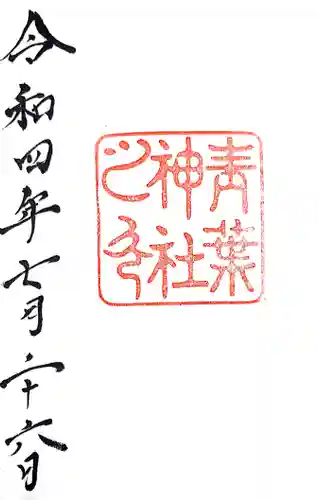 青葉
神社
令和四年七月二十六日